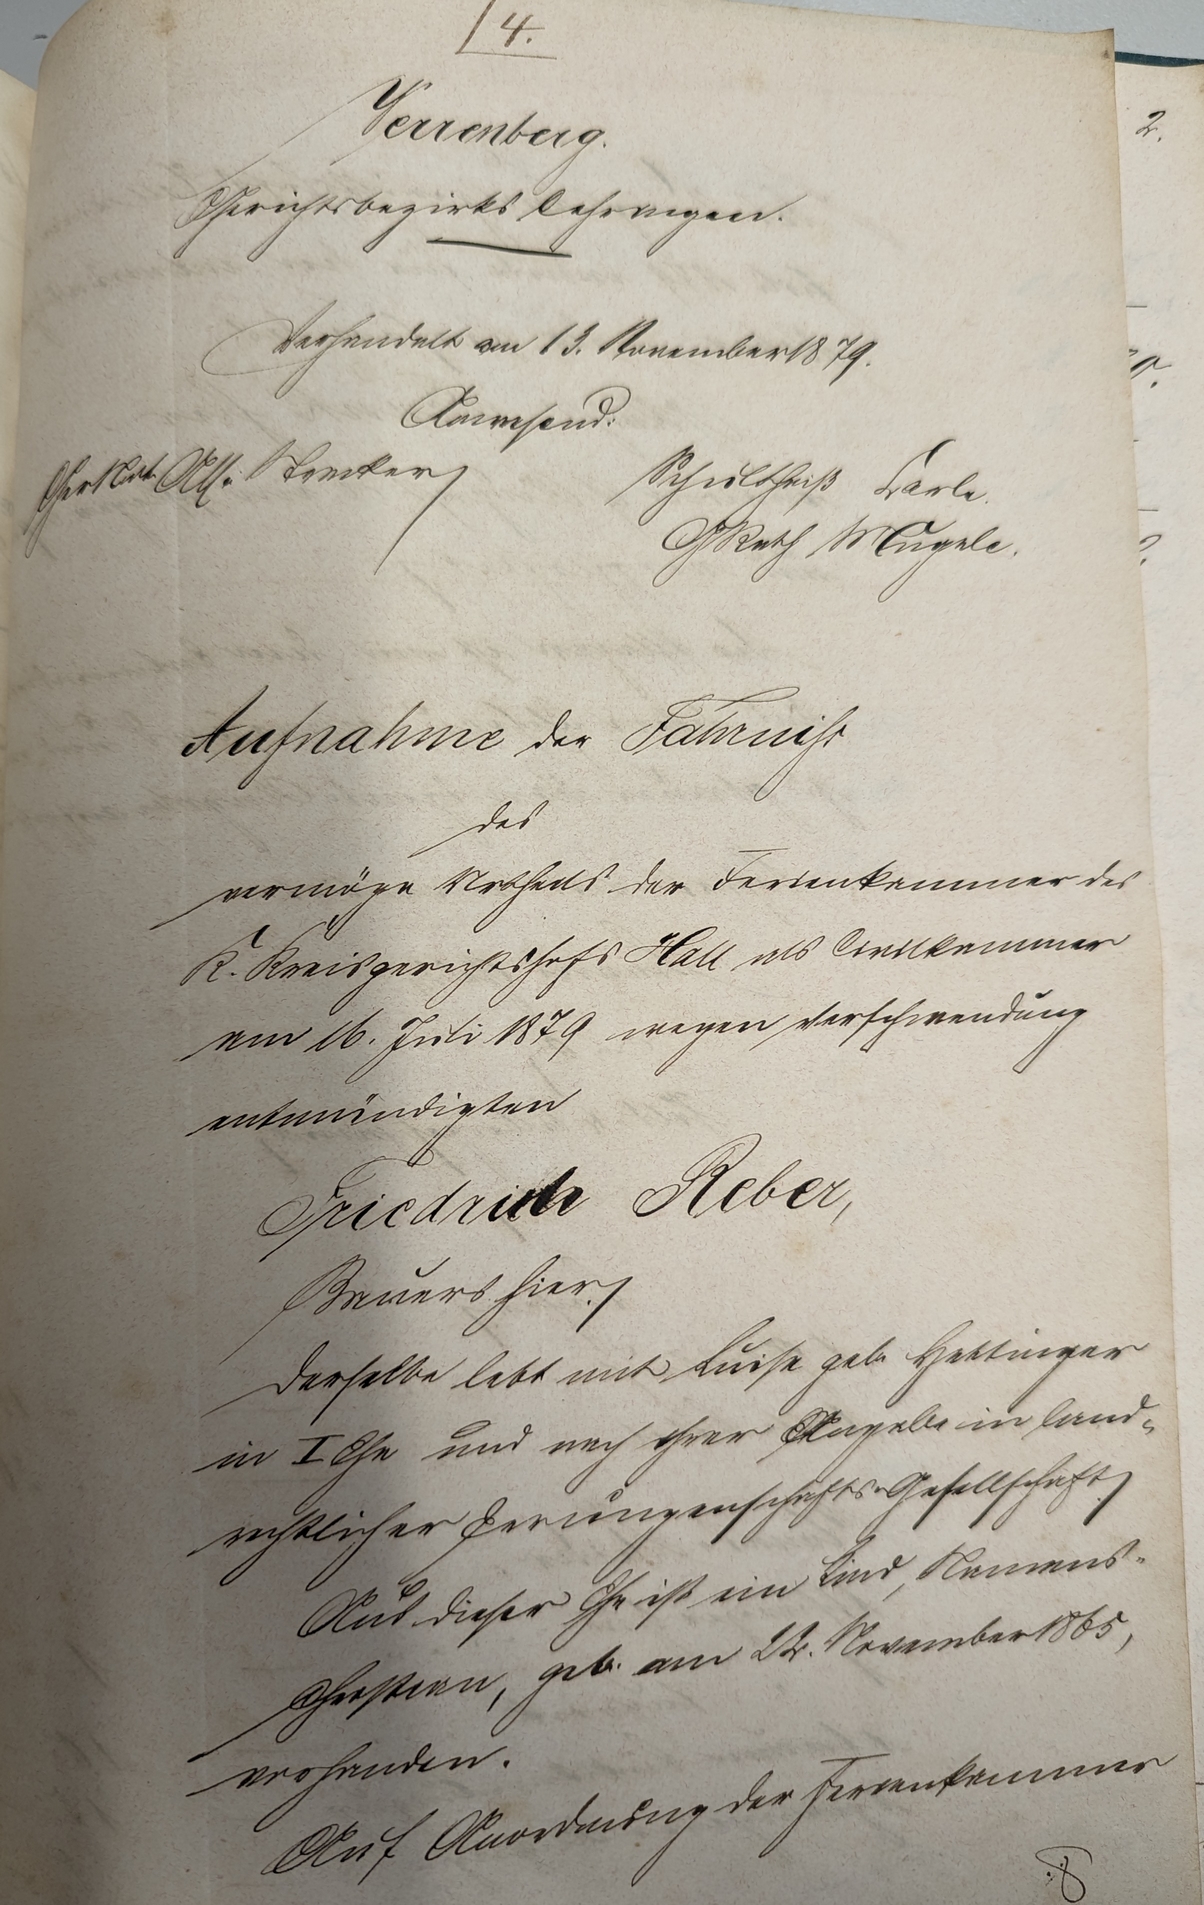 4.
2.
Verrenberg.
Gerichtsbezirks Oehringen.
Verhandelt am 13. November 1879.
Anwesend:
Ger Not. Ass.
Schultheiß Carle.
GRath Mugele.
Aufnahme der Fahrniß
des
vermöge Urtheils der Ferienkammer des
K. Kreisgerichtshofs Hall als Civilkammer
vom 16. Juli 1879 wegen Verschwendung
entmündigten
Friedrich Reber,
Bauers hier.
Derselbe lebt mit Luise geb. Hettinger
in I Ehe und nach ihrer Angabe in land-
rechtlicher Errungenschafts-Gesellschaft.
Aus dieser Ehe ist ein Kind, Namens-
Christian, geb. am 22. November 1865,
vorhanden.
Auf Anordnung der Ferienkammer